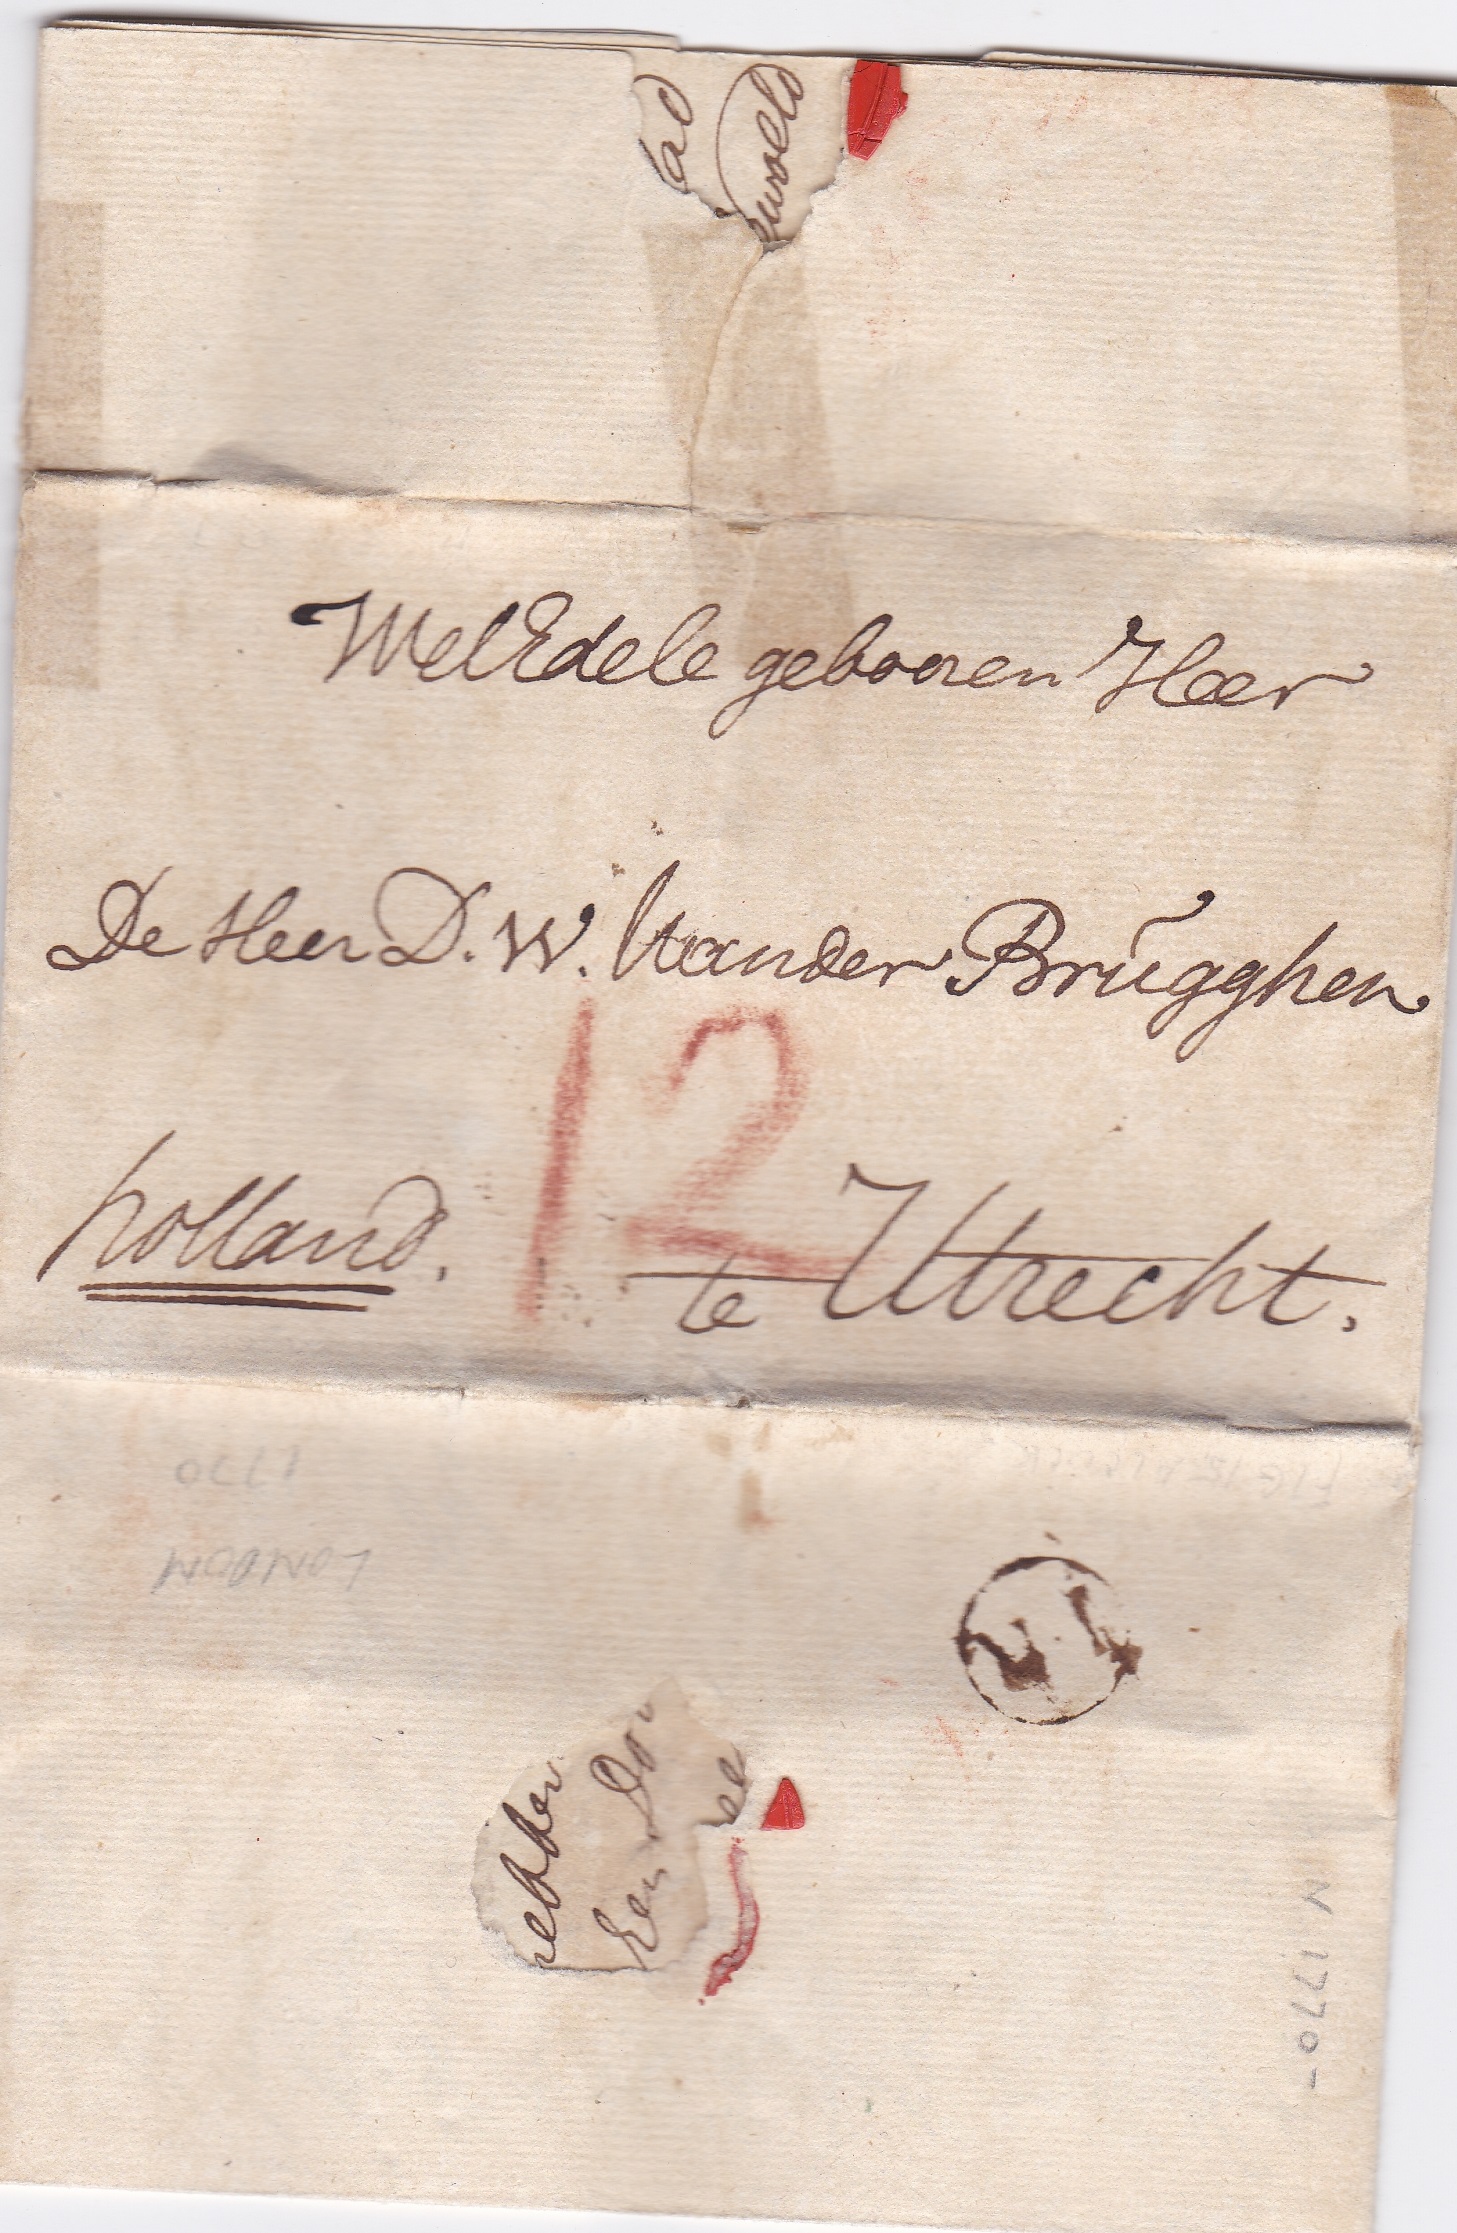 WelEdele gebooren Heer
De Heer D. W. Vander Brugghen
12
holland.
te Utrecht.
1770
LONDON
hebben
N 1770-